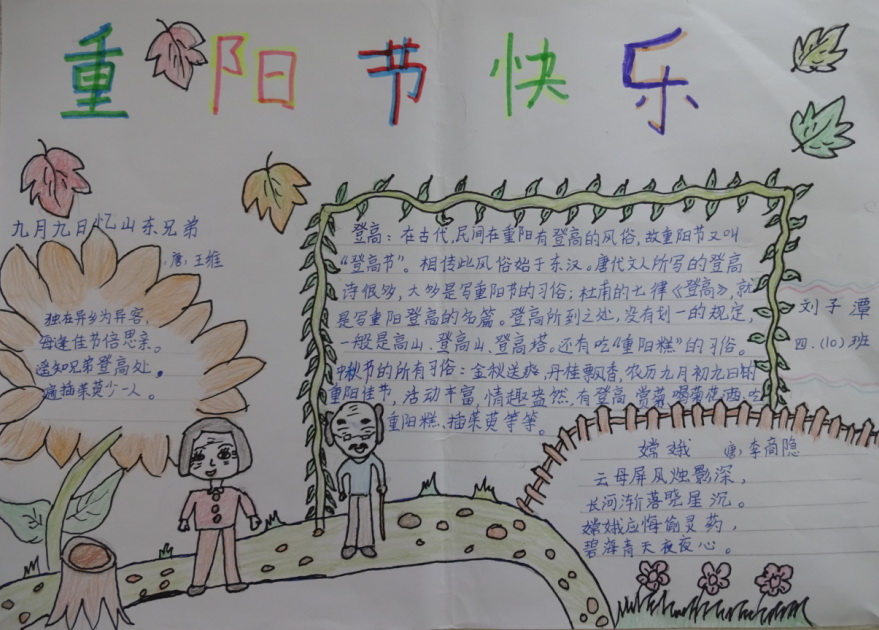 重阳节快乐
九月九日忆山东兄弟
唐，王维
独在异乡为异客，
每逢佳节倍思亲。
遥知兄弟登高处，
遍插茱萸少一人。
登高：在古代，民间在重阳有登高的风俗，故重阳节又叫
“登高节”。相传此风俗始于东汉。唐代文人所写的登高
诗很多，大多是写重阳节的习俗；杜甫的七律《登高》，就
是写重阳登高的名篇。登高所到之处，没有划一的规定，
一般是高山、登高山、登高塔。还有吃“重阳糕”的习俗。
中秋节的所有习俗：金秋送爽，丹桂飘香，农历九月初九日的
重阳佳节，活动丰富，情趣盎然，有登高、赏菊、喝菊花酒、吃
重阳糕、插茱萸等等。
刘子潭
四.(10)班
嫦娥 唐，李商隐
云母屏风烛影深，
长河渐落晓星沉。
嫦娥应悔偷灵药，
碧海青天夜夜心。